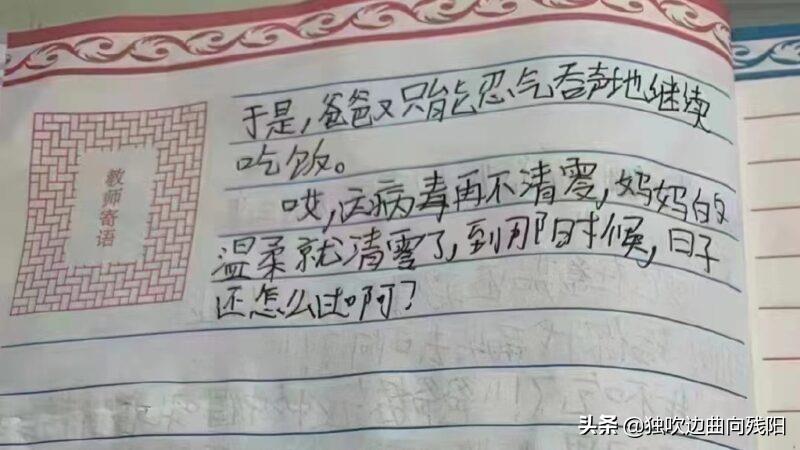 于是，爸爸又只能忍气吞声地继续
吃饭。
教师寄语
哎，这病毒再不清零，妈妈的
温柔就清零了，到那时候，日子
还怎么过啊？
头条 @独吹边曲向残阳